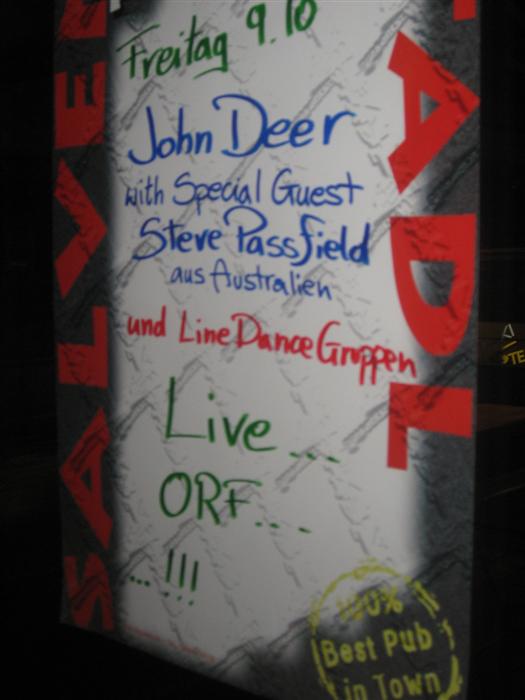 Freitag 9.10
John Deer
with Special Guest
Steve Passfield
aus Australien
und Line Dance Gruppen
Live ...
ORF....
... !!!
100%
Best Pub
in Town